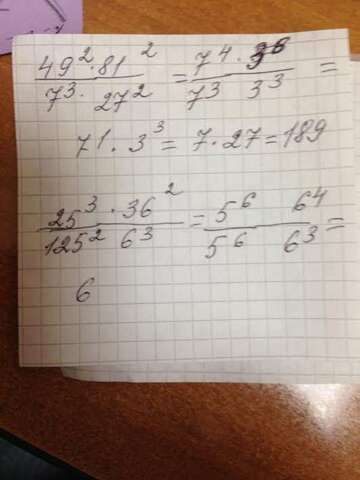 49² · 81² / 7³ · 27² = 7⁴ · 3⁶ / 7³ 3³ =
7¹ · 3³ = 7 · 27 = 189
25³ · 36² / 125² 6³ = 5⁶ 6⁴ / 5⁶ 6³ =
6